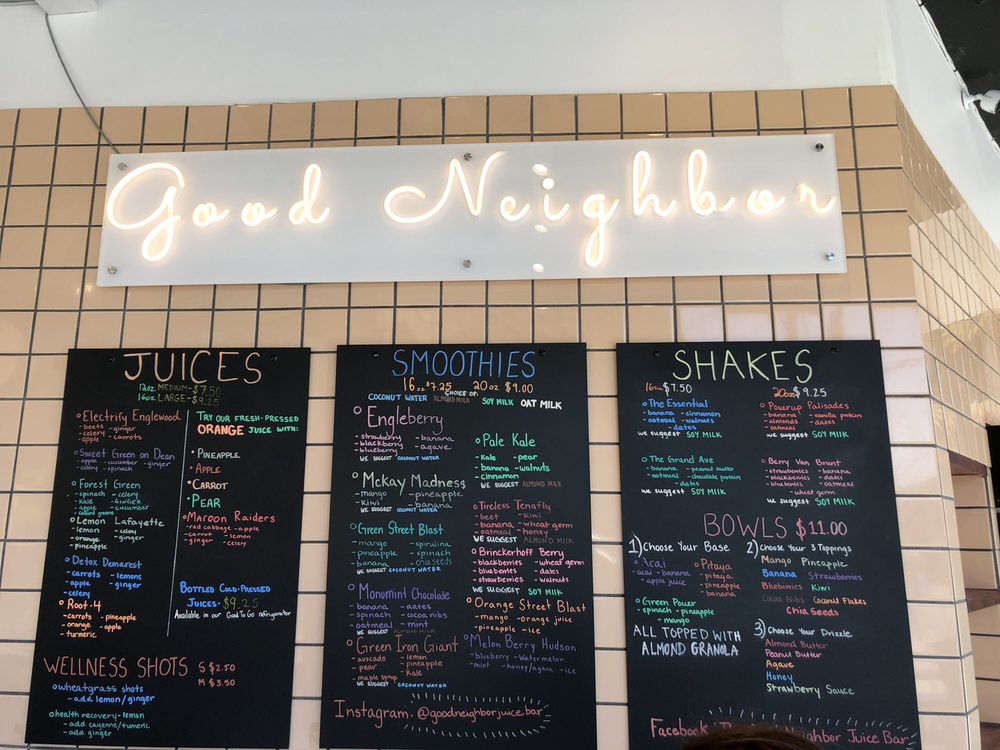 Good Neighbor
JUICES
12oz. MEDIUM-$7.50
16oz. LARGE-$9.25
Electrify Englewood
-beets -ginger
-celery -carrots
-apple
Sweet Green on Dean
-apple -cucumber -ginger
-celery -spinach
Forest Green
-spinach -celery
-kale -GINGER
-apple -cucumber
Lemon Lafayette
-lemon -celery
-orange -ginger
-pineapple
Detox Demarest
-carrots -lemons
-apple -ginger
-celery
Root.4
-carrots -pineapple
-orange -apple
-turmeric
TRY OUR FRESH-PRESSED
ORANGE JUICE WITH:
PINEAPPLE
APPLE
CARROT
PEAR
Maroon Raiders
-red cabbage -apple
-carrot -lemon
-ginger -celery
BOTTLED COLD-PRESSED
JUICES-$9.25
Available in our Good To Go refrigerator
WELLNESS SHOTS S $2.50
M $3.50
wheatgrass shots
-add lemon/ginger
health recovery-lemon
-add cayenne/tumeric
-add ginger
SMOOTHIES
16oz $7.25 20oz $9.00
CHOICE OF:
COCONUT WATER ALMOND MILK SOY MILK OAT MILK
Engleberry
-strawberry -banana
-blackberry -agave
-blueberry
WE SUGGEST COCONUT WATER
Mckay Madness
-mango -pineapple
-kiwi -banana
WE SUGGEST COCONUT WATER
Green Street Blast
-mango -spirulina
-pineapple -spinach
-banana -chia seeds
WE SUGGEST COCONUT WATER
Monomint Chocolate
-banana -dates
-spinach -cocoa nibs
-oatmeal -mint
WE SUGGEST ALMOND MILK
Green Iron Giant
-avocado -lemon
-pear -pineapple
-maple syrup -kale
WE SUGGEST COCONUT WATER
Pale Kale
-kale -pear
-banana -walnuts
-cinnamon
WE SUGGEST ALMOND MILK
Tireless Tenafly
-beet -kiwi
-banana -wheat germ
-oatmeal -honey
WE SUGGEST ALMOND MILK
Brinckerhoff Berry
-blackberries -wheat germ
-blueberries -dates
-strawberries -walnuts
WE SUGGEST SOY MILK
Orange Street Blast
-mango -orange juice
-pineapple -ice
Melon Berry Hudson
-blueberry -Watermelon
-mint -honey/agave -ice
Instagram. @goodneighborjuice.bar
SHAKES
16oz $7.50 20oz $9.25
The Essential
-banana -cinnamon
-oatmeal -walnuts
-dates
we suggest SOY MILK
The Grand Ave
-banana -peanut butter
-oatmeal -chocolate protein
-dates
we suggest SOY MILK
Powerup Palisades
-banana -vanilla protein
-almonds -dates
-oatmeal
we suggest SOY MILK
Berry Van Brunt
-strawberries -banana
-blackberries -dates
-blueberries -oatmeal
-wheat germ
we suggest SOY MILK
BOWLS $11.00
1) Choose Your Base
Acai
-acai -banana
-apple juice
Pitaya
-pitaya
-pineapple
-banana
Green Power
-spinach -pineapple
-mango
ALL TOPPED WITH
ALMOND GRANOLA
2) Choose Your 3 Toppings
Mango Pineapple
Banana Strawberries
Blueberries Kiwi
Cocoa Nibs Coconut Flakes
Chia Seeds
3) Choose Your Drizzle
Almond Butter
Peanut Butter
Agave
Honey
Strawberry Sauce
Facebook. Neighbor Juice Bar